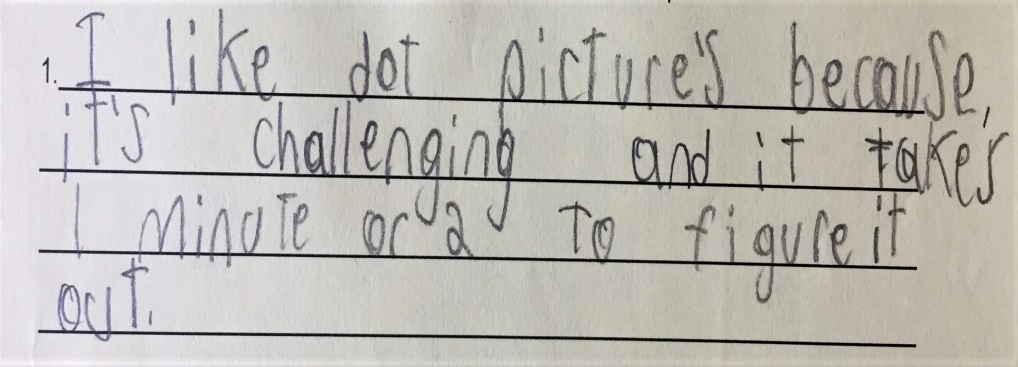 1. I like dot picture's because,
it's challenging and it takes
1 minute or 2 to figure it
out.